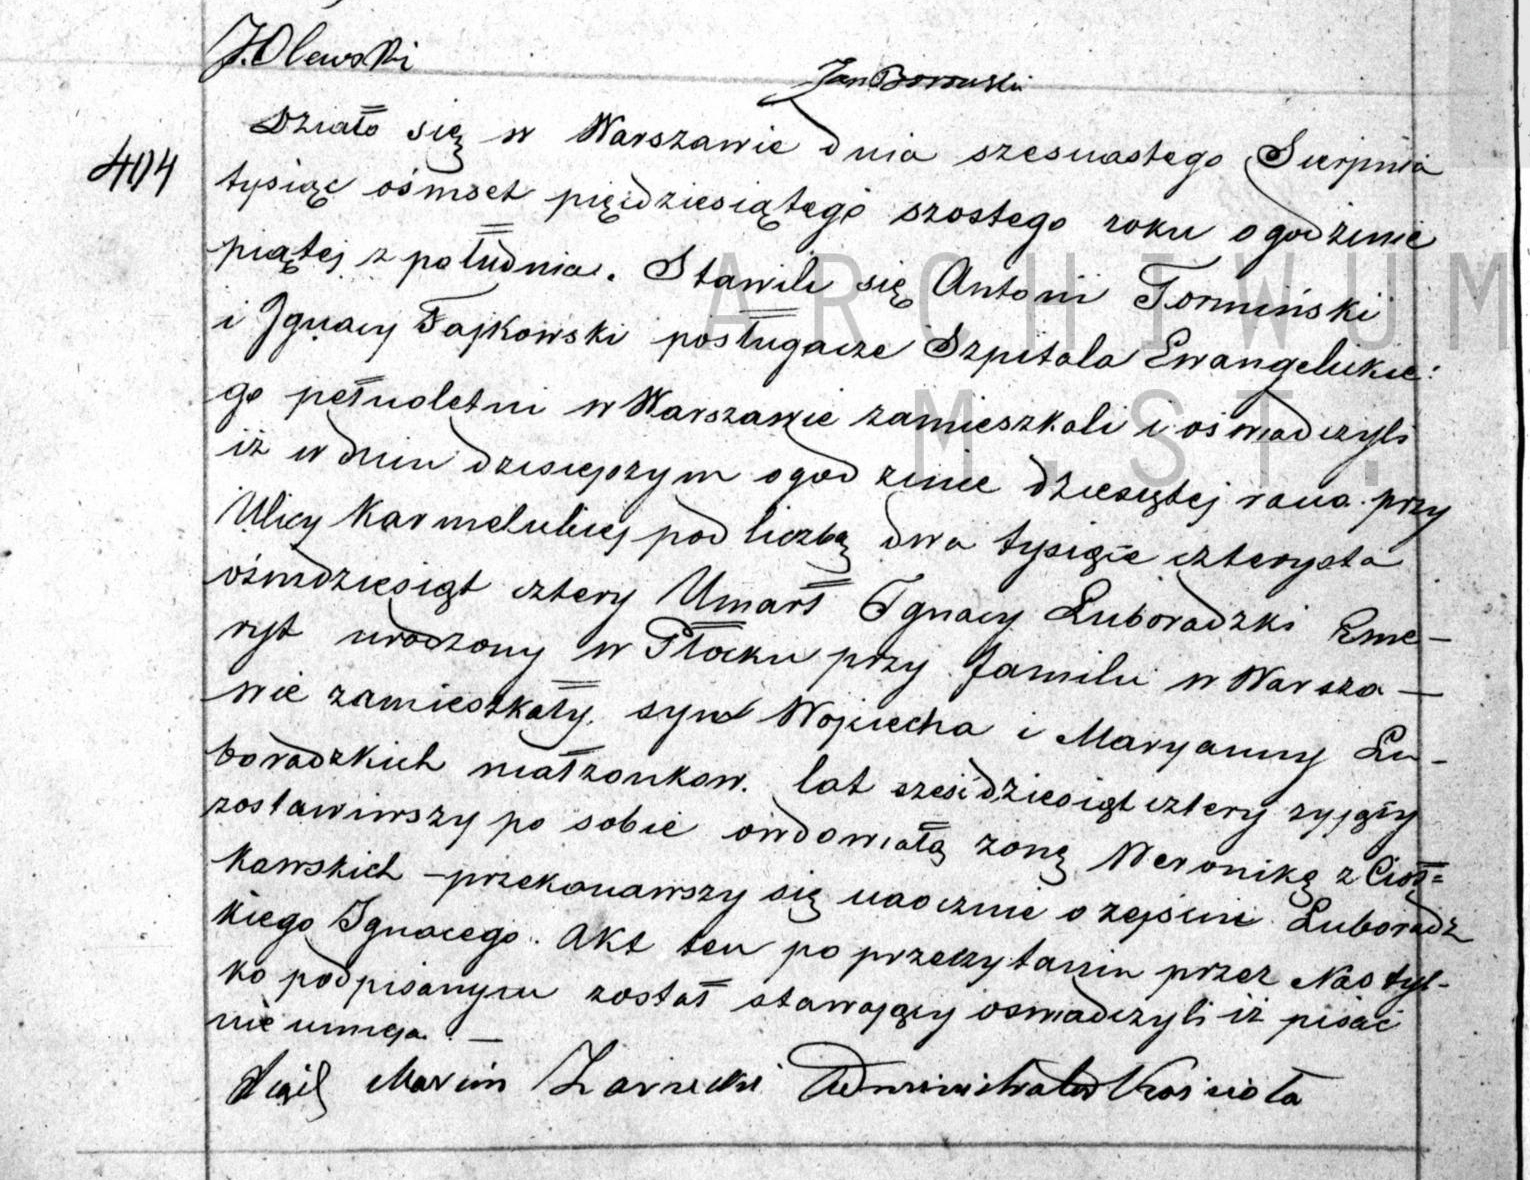 J. Olewski
Jan Borowski
404
Działo się w Warszawie dnia szesnastego Sierpnia
tysiąc ośmset pięćdziesiątego szostego roku o godzinie
piątej z południa. Stawili się Antoni Tormiński
i Ignacy Fajkowski posługacze Szpitala Ewangelickie:
go pełnoletni w Warszawie zamieszkali i oświadczyli
iż w dniu dzisiejszym o godzinie dziesiątej rana przy
Ulicy Karmelickiej pod liczbą dwa tysiące czterysta
ośmdziesiąt cztery Umarł Ignacy Luboradzki Eme-
ryt urodzony w Płocku przy familii w Warsza-
wie zamieszkały, syn Wojciecha i Maryanny Lu-
boradzkich małżonkow. lat sześćdziesiąt cztery żyjący
zostawiwszy po sobie owdowiałą żonę Weronikę z Cioł=
kowskich - przekonawszy się naocznie o zejściu Luboradz
kiego Ignacego. Akt ten po przeczytaniu przez Nas tyl-
ko podpisanym został stawający oświadczyli iż pisać
nie umieją. —
Marcin Administrator Kościoła
ARCHIWUM
M. ST.